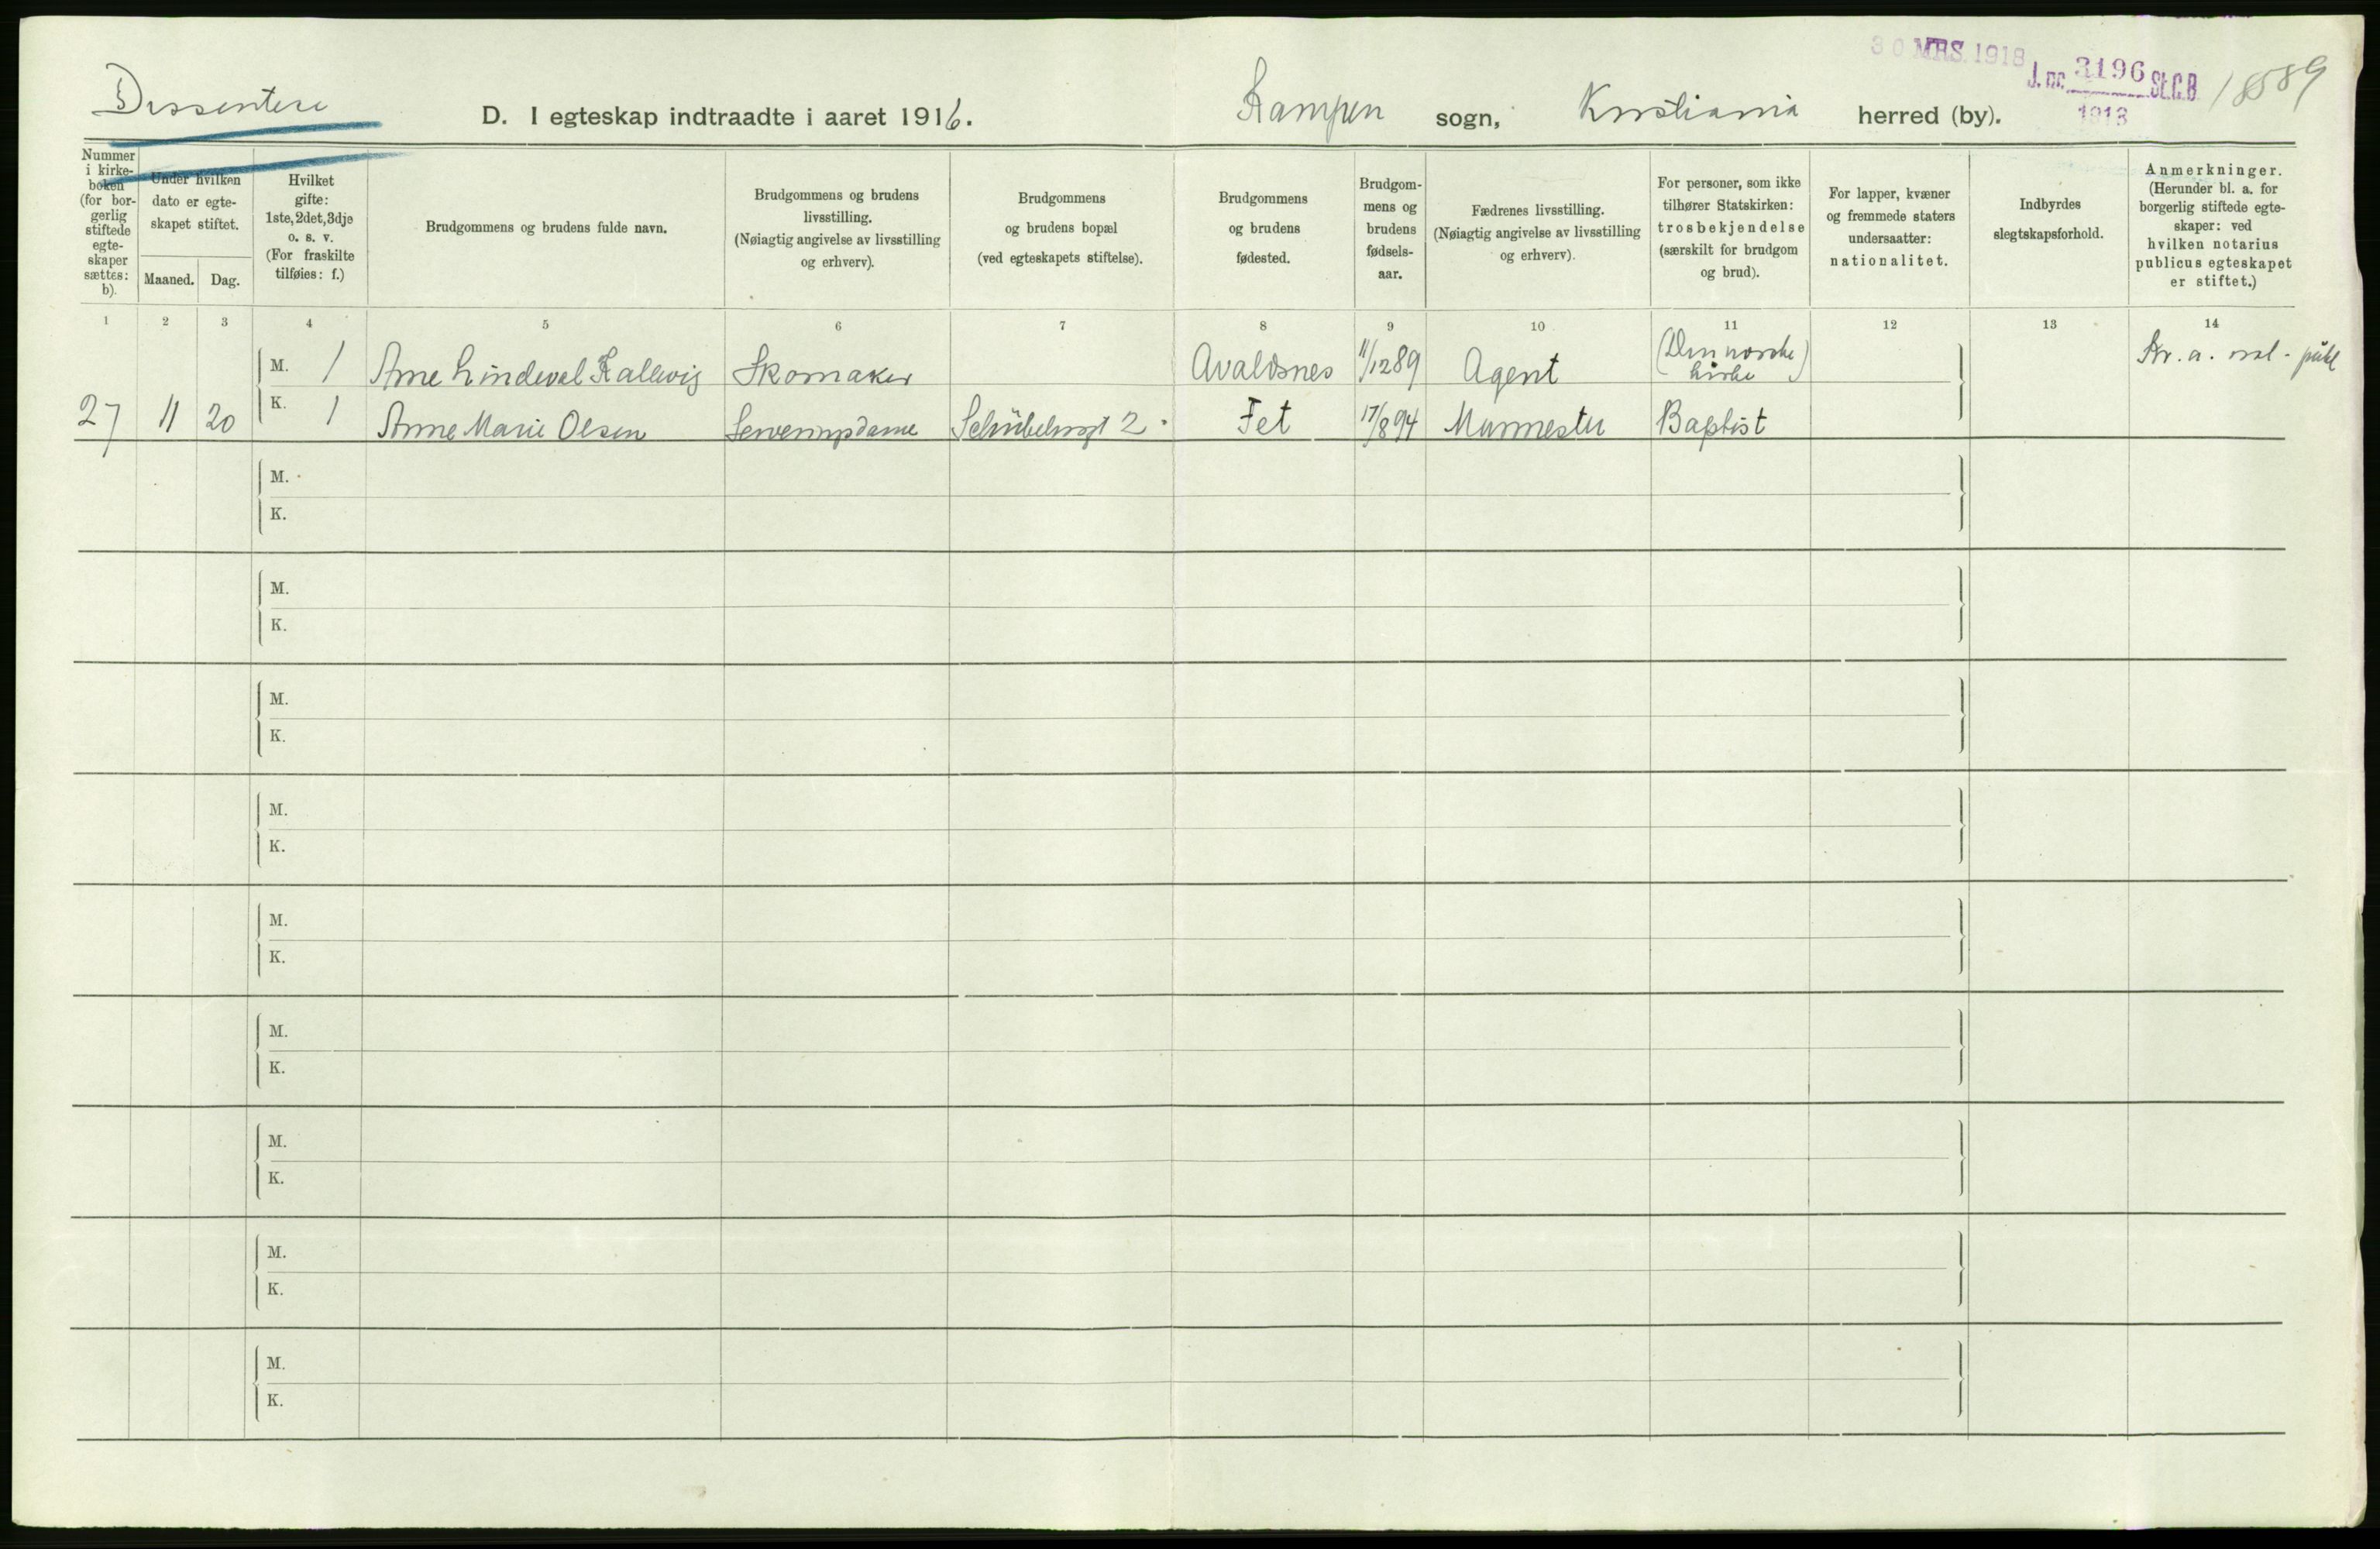 30 MRS. 1918
J. nr. 3196 St.C.B.
1918
18589
Dissentere
D. I egteskap indtraadte i aaret 1916.
Kampen sogn, Kristiania herred (by).
Nummer i kirke-boken (for bor-gerlig stiftede egte-skaper sættes: b).
Under hvilken dato er egte-skapet stiftet.
Maaned. Dag.
Hvilket gifte: 1ste, 2det, 3dje o. s. v. (For fraskilte tilføies: f.)
Brudgommens og brudens fulde navn.
Brudgommens og brudens livsstilling. (Nøiagtig angivelse av livsstilling og erhverv).
Brudgommens og brudens bopæl (ved egteskapets stiftelse).
Brudgommens og brudens fødested.
Brudgom-mens og brudens fødsels-aar.
Fædrenes livsstilling. (Nøiagtig angivelse av livsstilling og erhverv).
For personer, som ikke tilhører Statskirken: trosbekjendelse (særskilt for brudgom og brud).
For lapper, kvæner og fremmede staters undersaatter: nationalitet.
Indbyrdes slegtskapsforhold.
Anmerkninger. (Herunder bl. a. for borgerlig stiftede egte-skaper: ved hvilken notarius publicus egteskapet er stiftet.)
1 2 3 4 5 6 7 8 9 10 11 12 13 14
M. 1 Arne Lindeval Kallevig Skomaker Avaldsnes 11/12 89 Agent (Den norske kirke) Kr.a. not. publ
27 11 20 K. 1 Anne Marie Olsen Serveringsdame Schübelersgt 2. Fet 17/8 94 Murmester Baptist
M.
K.
M.
K.
M.
K.
M.
K.
M.
K.
M.
K.
M.
K.
M.
K.
M.
K.